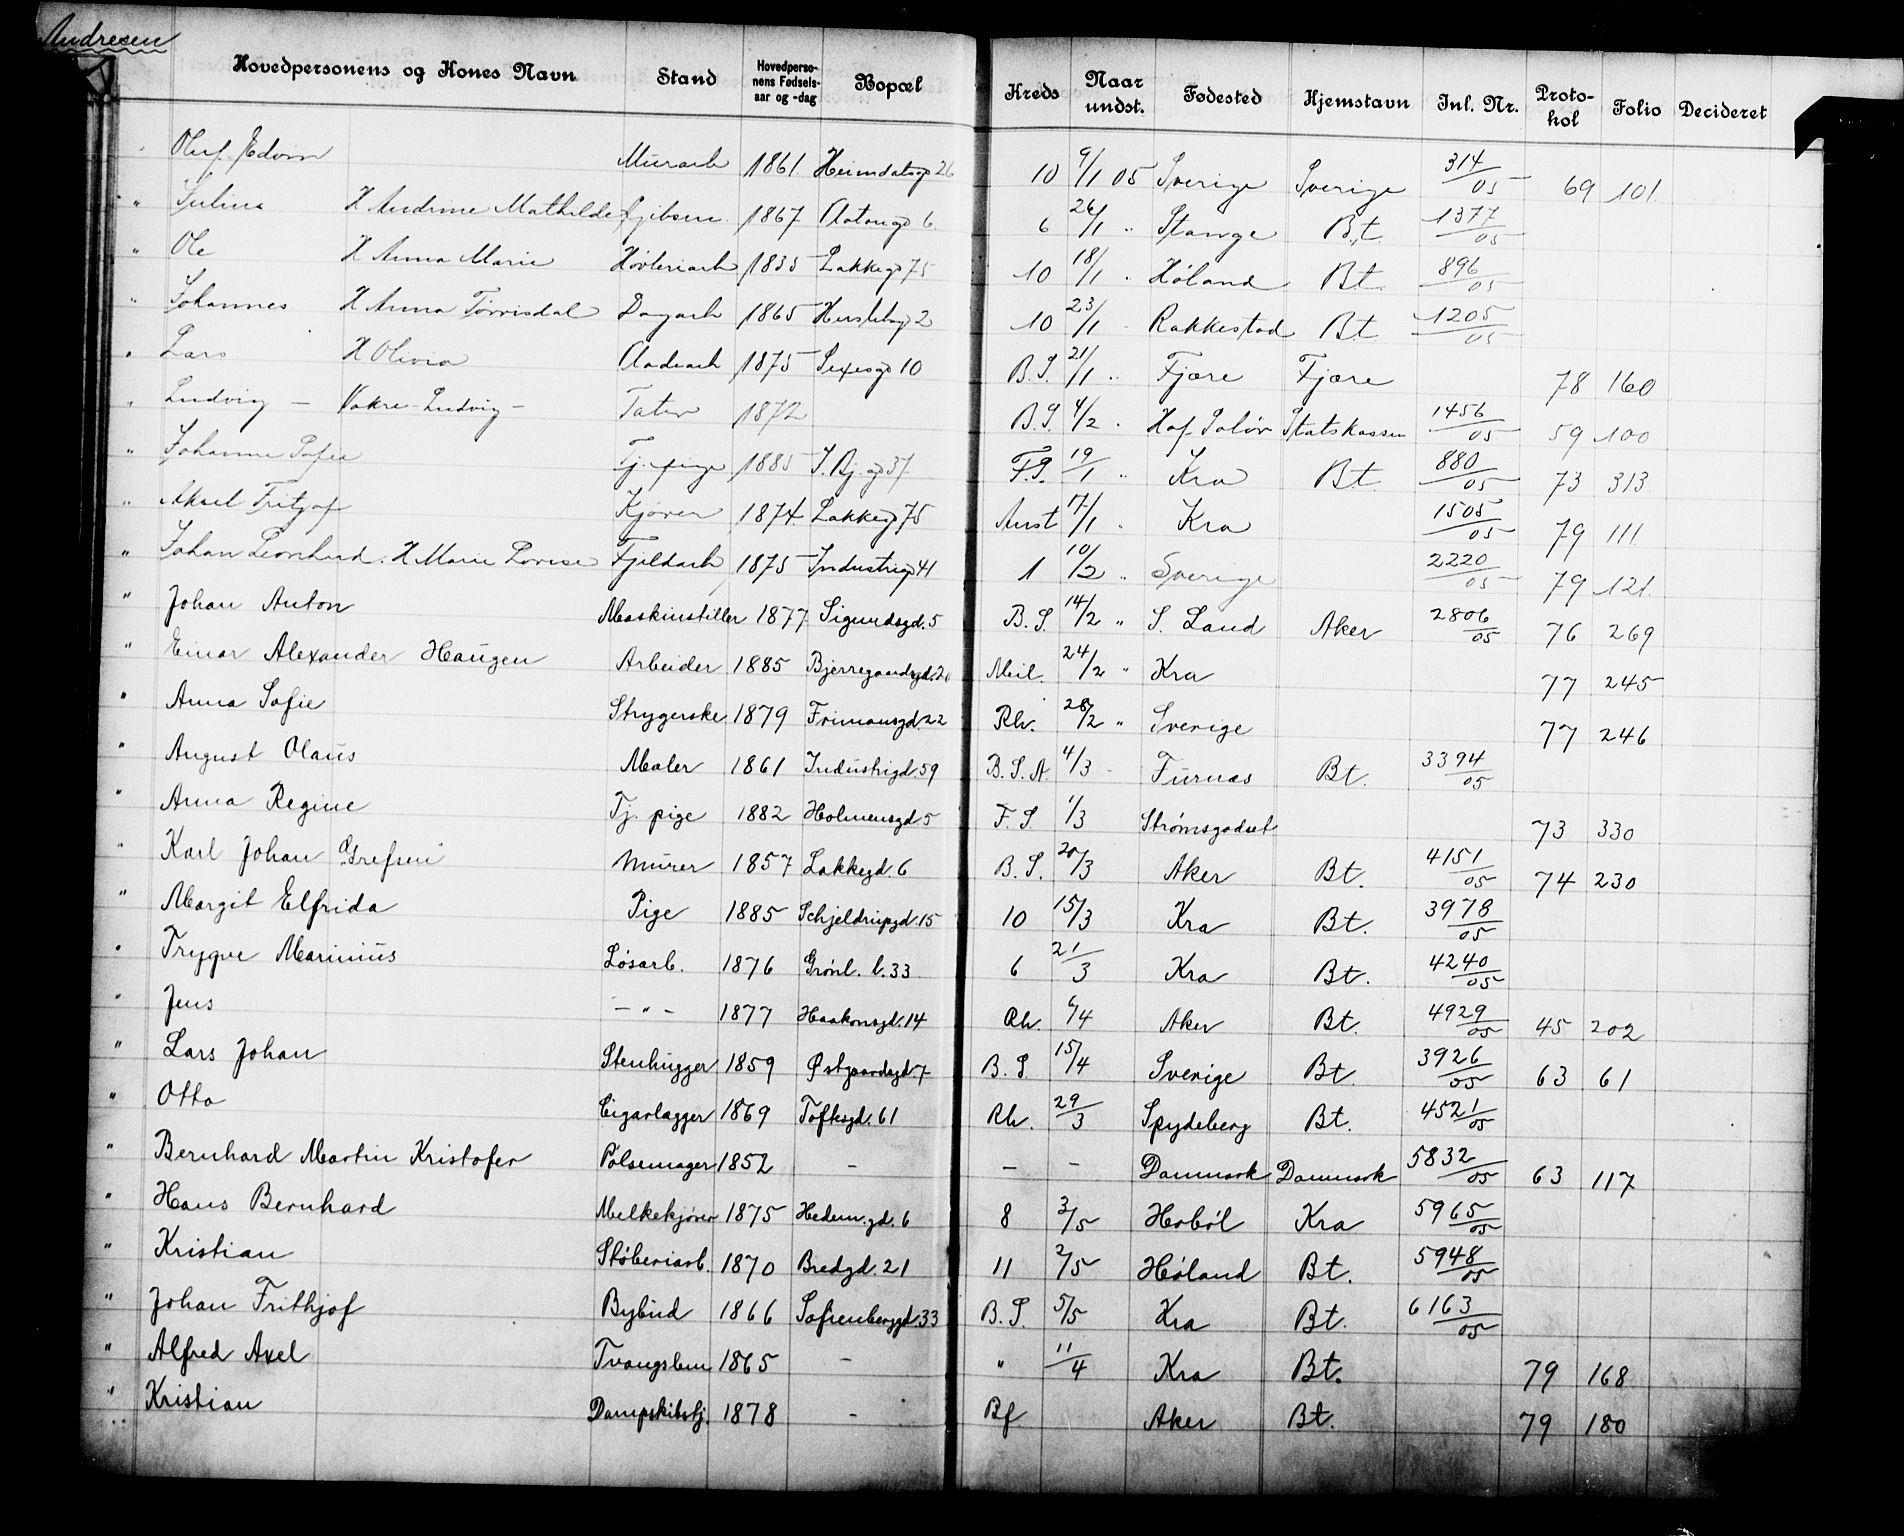 Andresen
Hovedpersonens og Kones Navn Stand Hovedpersonens Fødselsaar og -dag Bopæl Kreds Naar undst. Fødested Hjemstavn Inl. Nr. Protokol Folio Decideret
Oluf Edvin Murarb 1861 Heimdalsgd 26 10 9/1 05 Sverige Sverige 314/05 69 101
" Julius H Andrine Mathilde Gibsm 1867 6 6 26/1 " Stange Bt. 1377/05
" Ole H Anna Marie Høvleriarb 1835 Lakkegd 75 10 18/1 " Høland Bt. 896/05
" Johannes H Anna Tørrisdal Dagarb 1865 Herslebsgd 2 10 23/1 Rakkestad Bt 1205/05
" Lars H Olivia 1875 Sexesgd 10 B.S. 21/1 " Fjære Fjære 78 160
" Ludvig — Vakre-Ludvig — Tater 1872 B.S. 4/2 " Hof Solør Statskassen 1456/05 59 100
" Johanne Sofie Tj. pige 1885 37 F.S. 19/1 " Kra Bt. 880/05 73 313
" Aksel Fritjof Kjører 1874 Lakkegd 75 Anst 17/1 " Kra 1505/05 79 111
" Johan Leonhard. H Marie Lovise Fjeldarb 1875 Industrigd 41 1 10/2 " Sverige 2220/05 79 121
" Johan Anton Maskinstiller 1877 Sigurdsgd. 5 B. S. 14/2 " S. Land Aker 2806/05 76 269
" Einar Alexander Haugen Arbeider 1885 Bjerregaardsgd. 20 Meil. 24/2 " Kra 77 245
" Anna Sofie Strygerske 1879 Frimansgd. 22 Rh. 28/2 " Sverige 77 246
" August Olaus Maler 1861 Industrigd. 59 B. S. A. 4/3 Furnæs Bt. 3394/05
" Anna Regine Tj. pige 1882 Holmensgd 5 F. S. 1/3 Strømsgodset 73 330
" Karl Johan Grefsen Murer 1857 Lakkegd. 6 B. S. 20/3 Aker Bt. 4151/05 74 230
" Margit Elfrida Pige 1885 Schjeldrupgd. 15 10 15/3 Kra Bt. 3978/05
" Trygve Marinius Løsarb. 1876 Grønl. l. 33 6 21/3 Kra Bt. 4240/05
" Jens — " — 1877 Haakonsgd. 14 Rh. 6/4 Aker Bt. 4929/05 45 202
" Lars Johan Stenhugger 1859 Østgaardsgd. 7 B. S. 15/4 Sverige Bt. 3926/05 63 61
" Otto Cigarlagger 1869 Toftesgd. 61 Rh. 29/3 Spydeberg Bt. 4521/05
" Bernhard Martin Kristofer Pølsemager 1852 — — — Danmark Danmark 5832/05 63 117
" Hans Bernhard Melkekjører 1875 Hedem. gd. 6 8 3/5 Hobøl Kra 5965/05
" Kristian Støberiarb. 1870 Bredgd. 21 11 2/5 Høland Bt. 5948/05
" Johan Frithjof Bybud 1866 Sofienberggd. 33 B. S. 5/5 Kra Bt. 6163/05
" Alfred Axel Tvangslem 1865 — " 11/4 Kra Bt. 79 168
" Kristian Dampskibstj. 1878 — Bf Aker Bt. 79 180